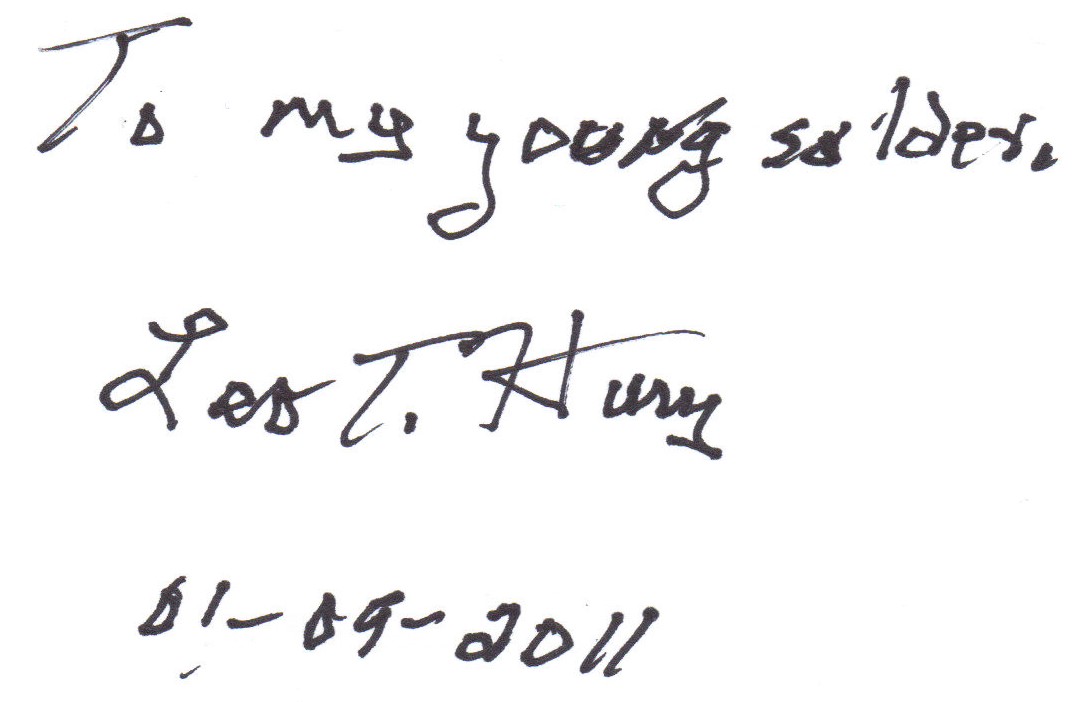 To my young solder.
Leo T. Hury
01-09-2011